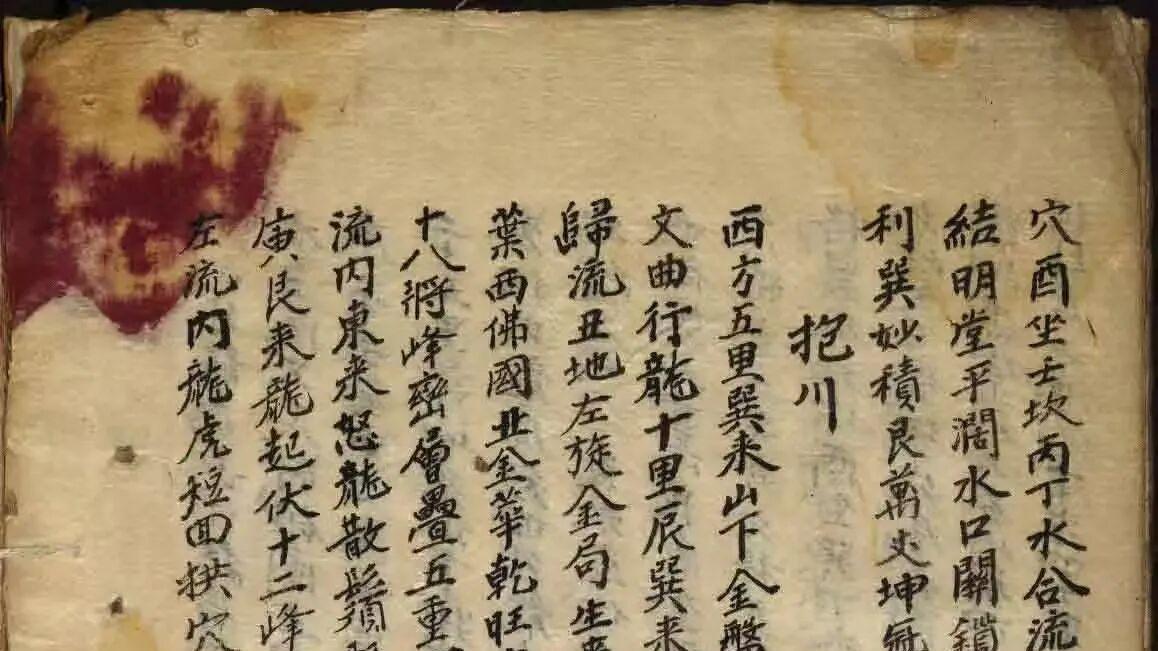 穴酉坐壬坎丙丁水合流
結明堂平濶水口關鎖
利巽妙積艮萬丈坤
抱川
西方五里巽来山下金盤
文曲行龍十里辰巽来
歸流丑地左旋金局生
葉西佛國北金華乾旺
十八將峰巒層疊五重
流内東来怒龍散鬚
庚艮来龍起伏十二峰
左流内龍虎短回拱穴